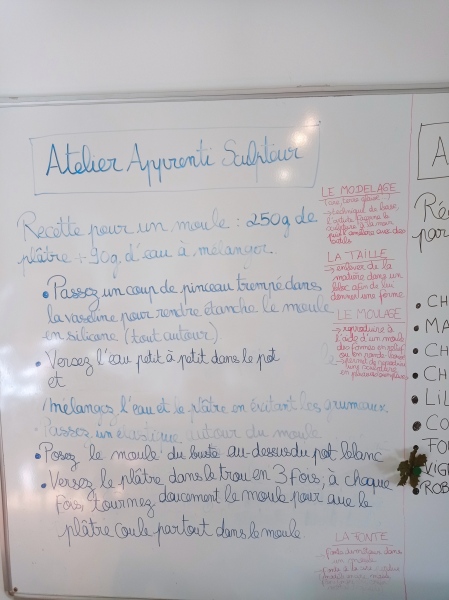 Atelier Apprenti Sculpteur
Recette pour un moule : 250g de
plâtre + 90g d'eau à mélanger
• Passez un coup de pinceau trempé dans
la vaseline pour rendre étanche le moule
en silicone (tout autour)
• Versez l'eau petit à petit dans le pot
et
mélangez l'eau et le plâtre en évitant les grumeaux
Passez un élastique autour du moule
• Posez le moule du buste au-dessus du pot blanc
• Versez le plâtre dans le trou en 3 fois, à chaque
fois, tournez doucement le moule pour que le
plâtre coule partout dans le moule.
LE MODELAGE
→ technique de base,
l'artiste façonne la
sculpture à la main
LA TAILLE
→ enlever de la
matière dans un
bloc afin de lui
donner une forme
LE MOULAGE
→ reproduire à
l'aide d'un moule
des formes en relief
ou en ronde bosse
LA FONTE
A
Ré
par
• CH
• MA
• CH
• CH
• LiL
• CO
• FO
VIG
ROB